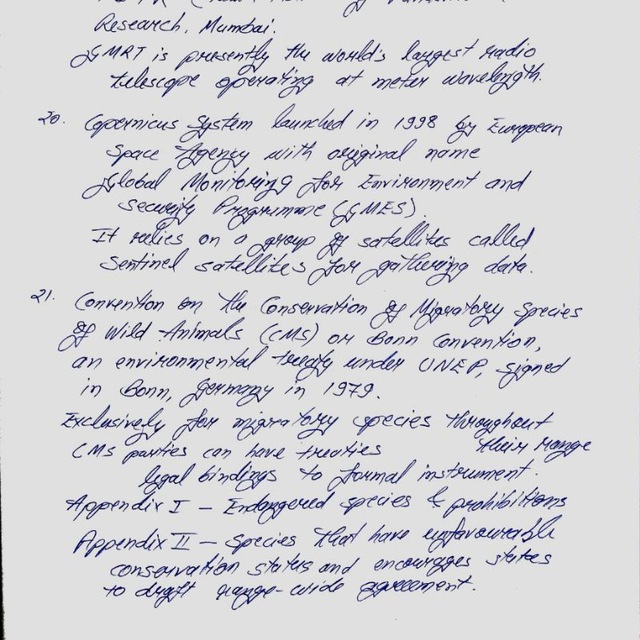 Research, Mumbai.
GMRT is presently the world's largest radio
telescope operating at meter wavelength.
20. Copernicus System launched in 1998 by European
Space Agency with original name
Global Monitoring for Environment and
Security Programme (GMES).
It relies on a group of satellites called
Sentinel satellites for gathering data.
21. Convention on the Conservation of Migratory Species
of Wild Animals (CMS) or Bonn Convention,
an environmental treaty under UNEP, signed
in Bonn, Germany in 1979.
Exclusively for migratory species throughout
their range
CMS parties can have treaties
legal bindings to formal instrument.
Appendix I – Endangered species & prohibitions
Appendix II – Species that have unfavourable
conservation status and encourages states
to draft range-wide agreement.